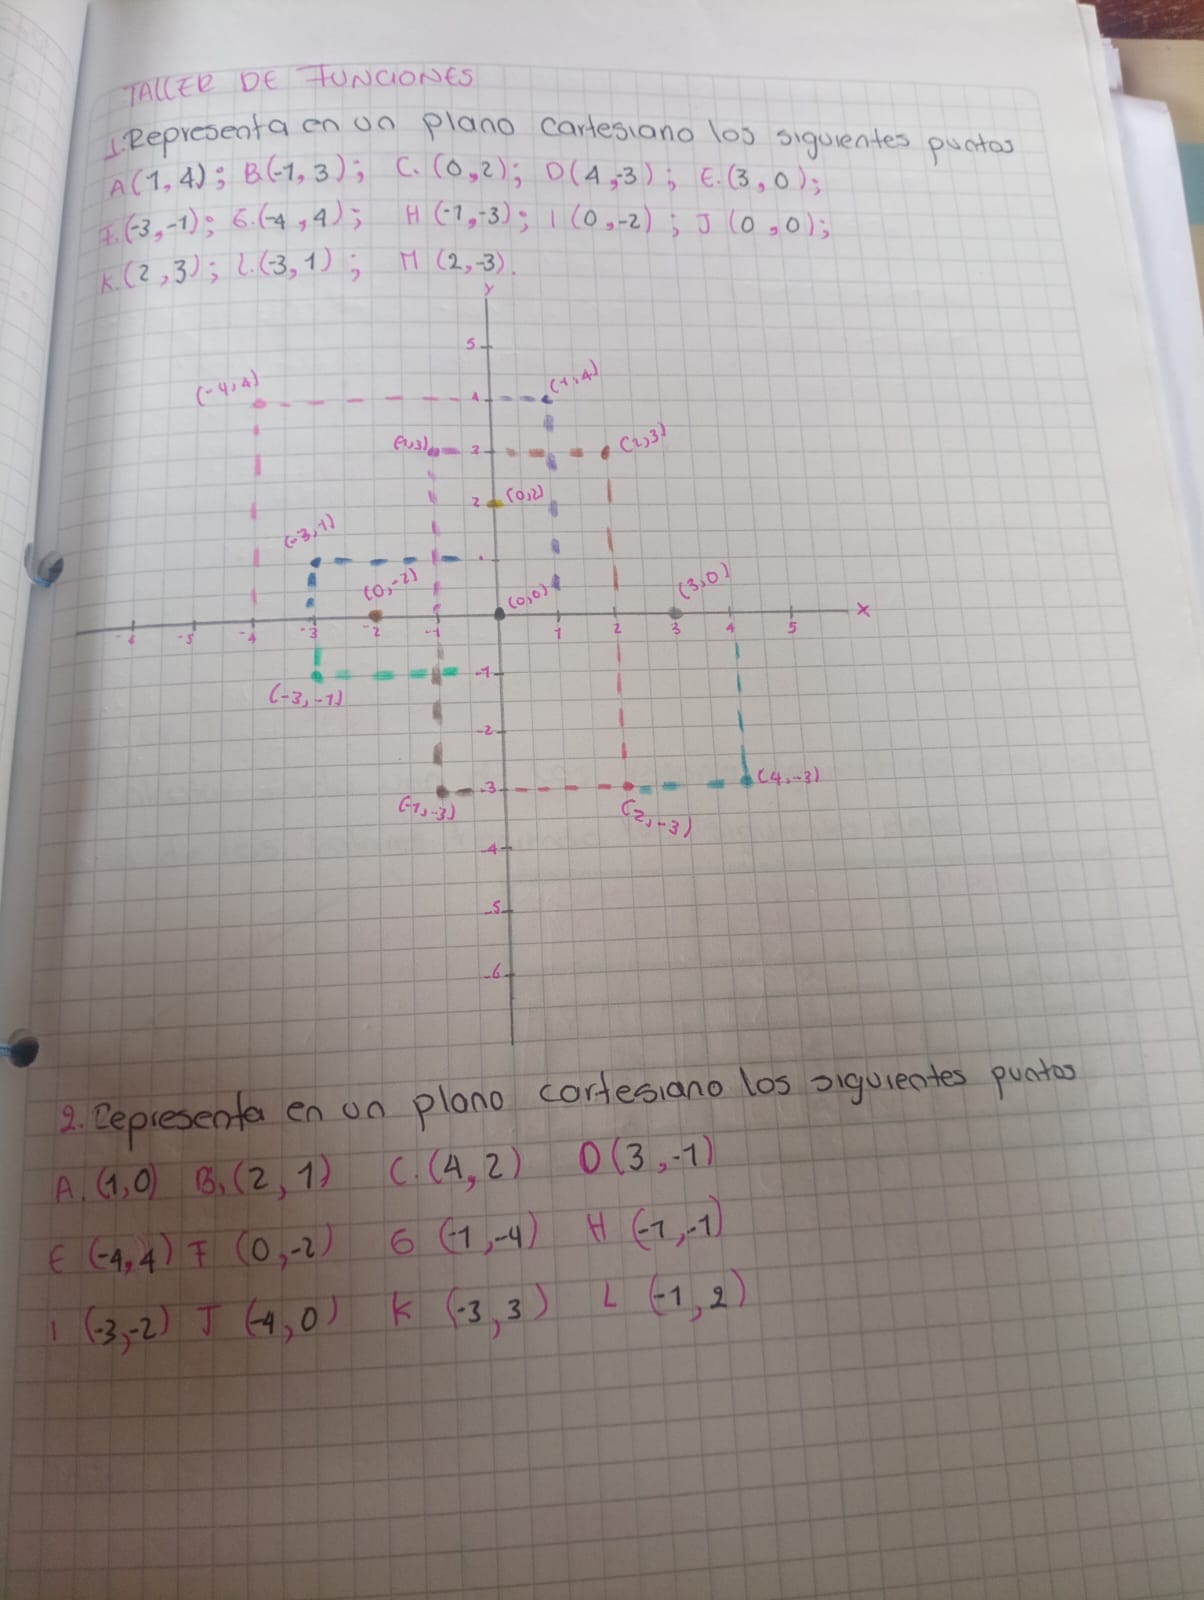 TALLER DE FUNCIONES
1. Representa en un plano cartesiano los siguientes puntos
A(1,4); B(-1,3); C.(0,2); D(4,-3); E.(3,0);
F.(-3,-1); G.(-4,4); H(-1,-3); I(0,-2); J(0,0);
K.(2,3); L.(-3,1); M(2,-3).
y
5
(-4,4) 4 (1,4)
3 (2,3)
2 (0,2)
(-3,1)
(0,-2) (0,0) (3,0)
x
-5 -4 -3 -2 -1 1 2 3 4 5
-1
(-3,-1)
-2
-3 (4,-3)
(-1,-3) (2,-3)
-4
-5
-6
2. Representa en un plano cartesiano los siguientes puntos
A.(1,0) B.(2,1) C.(4,2) D(3,-1)
E(-4,4) F(0,-2) G(-1,-4) H(-1,-1)
I(-3,-2) J(-4,0) K(-3,3) L(-1,2)